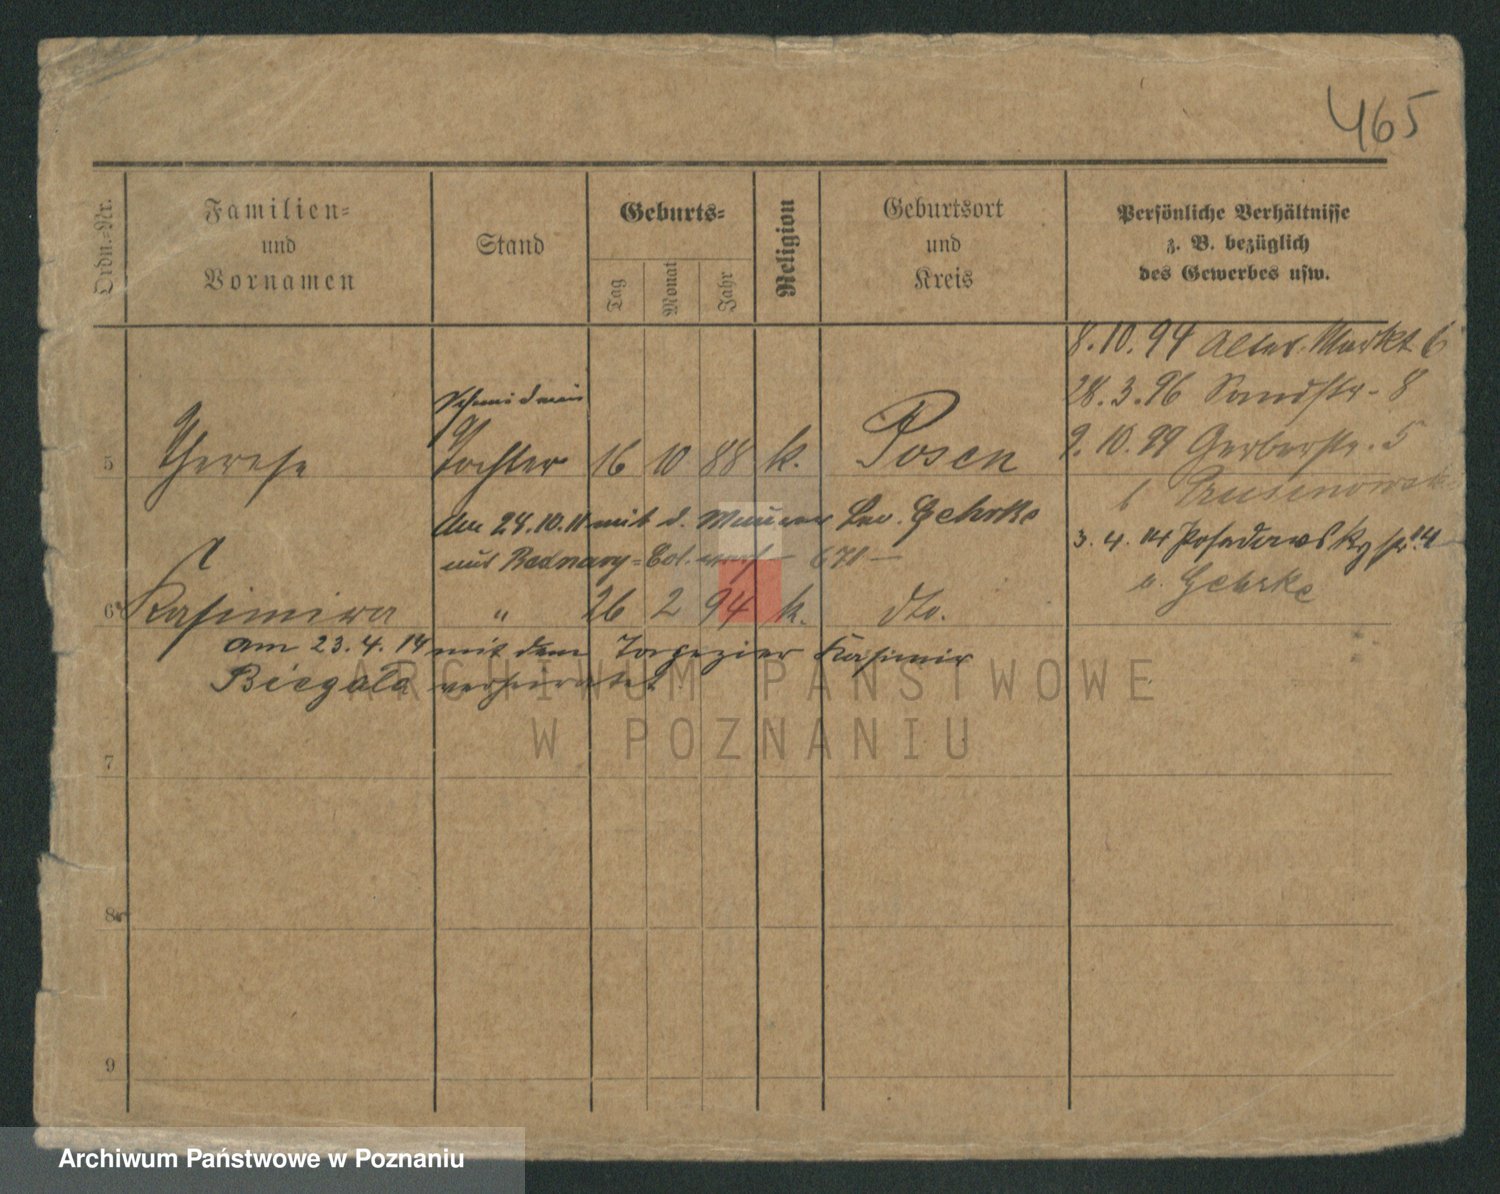 465
Ordn.-Nr.
Familien- und Vornamen
Stand
Geburts-
Tag
Monat
Jahr
Religion
Geburtsort und Kreis
Persönliche Verhältnisse z. B. bezüglich des Gewerbes usw.
8.10.94 Alter Markt 6
28.3.96 Sandstr. 8
9.10.99 Gerberstr. 5
5 Therese Tochter 16 10 88 k. Posen
b
am 24.10.11 mit d. Maurer Leo. Gehrke
3.4.14 Posadowskystr. 14
aus Bednary 671
b. Gehrke
6 Kasimira " 26 2 94 k. dto.
am 23.4.14 mit dem Tapezier Kasimir
Biegala verheiratet.
ARCHIWUM PAŃSTWOWE
W POZNANIU
7
8
9
Archiwum Państwowe w Poznaniu